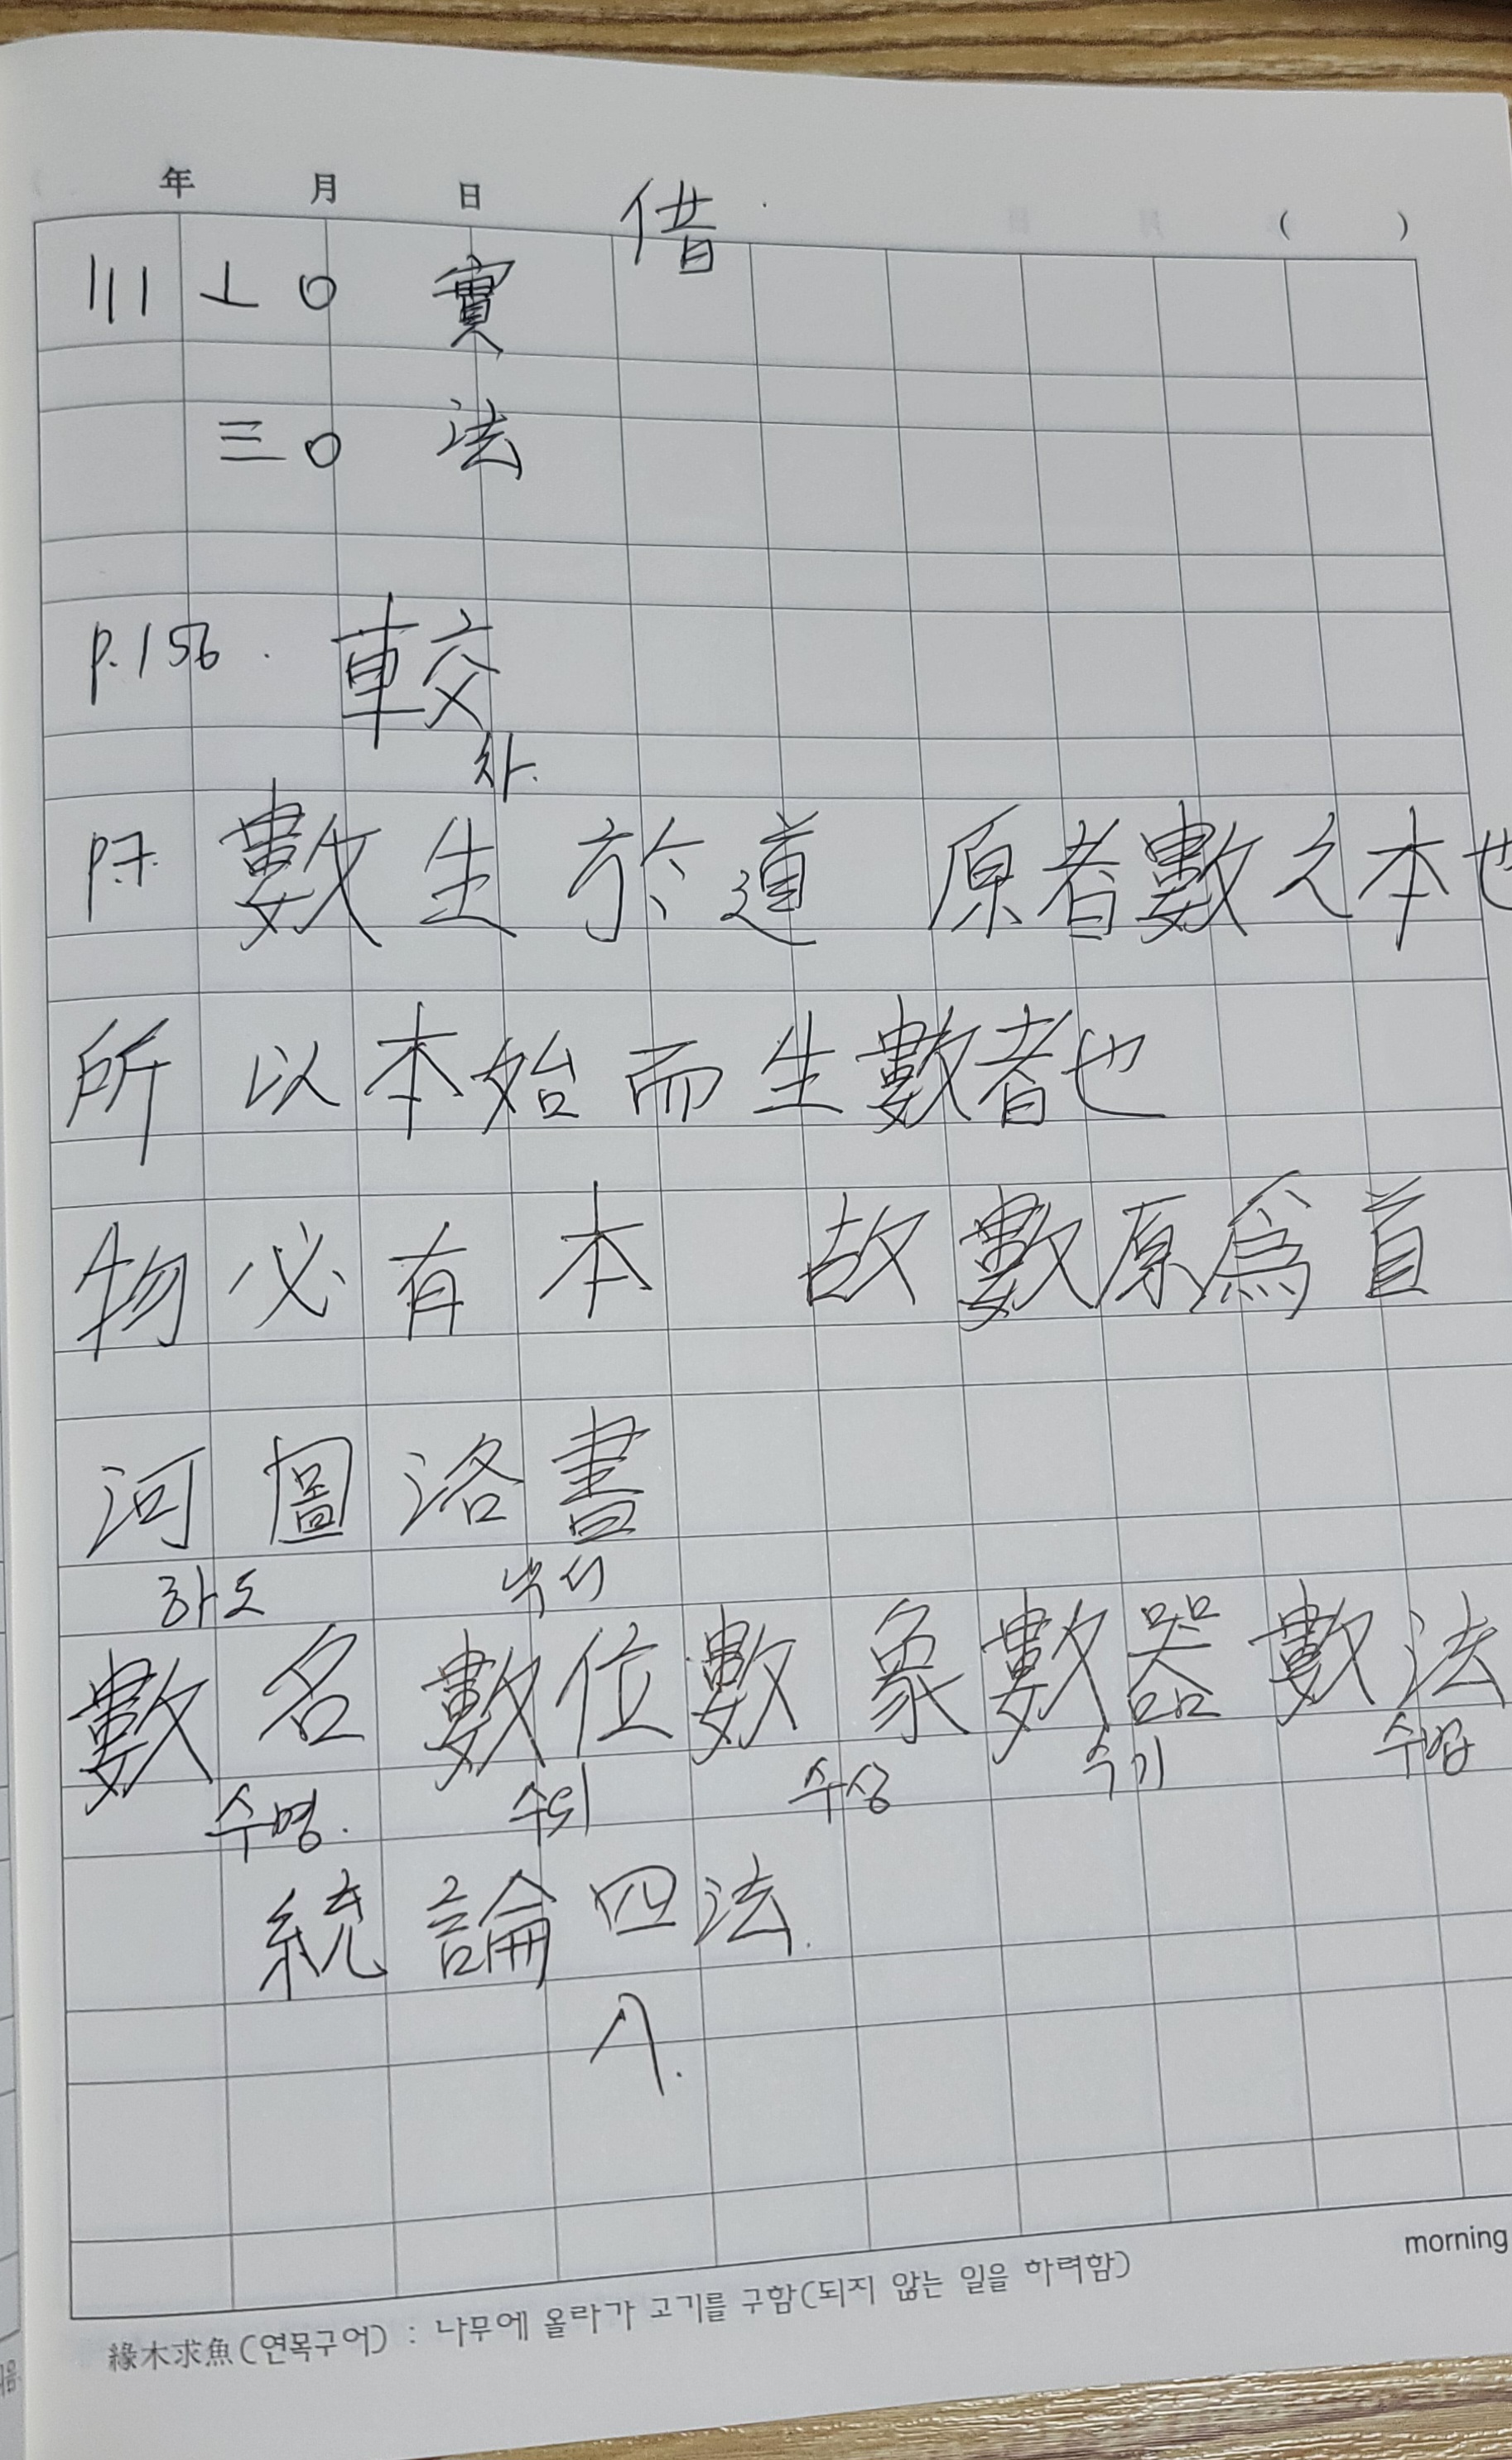 年 月 日 ( )
借
||| ⊥ ○ 實
三 ○ 法
p.156. 較
차.
p.7. 數生於道 原者數之本也
所以本始而生數者也
物必有本 故數原爲首
河圖洛書
하도 낙서
數名數位數象數器數法
수명. 수위 수상 수기 수법
統論四法.
緣木求魚(연목구어) : 나무에 올라가 고기를 구함(되지 않는 일을 하려함)
morning